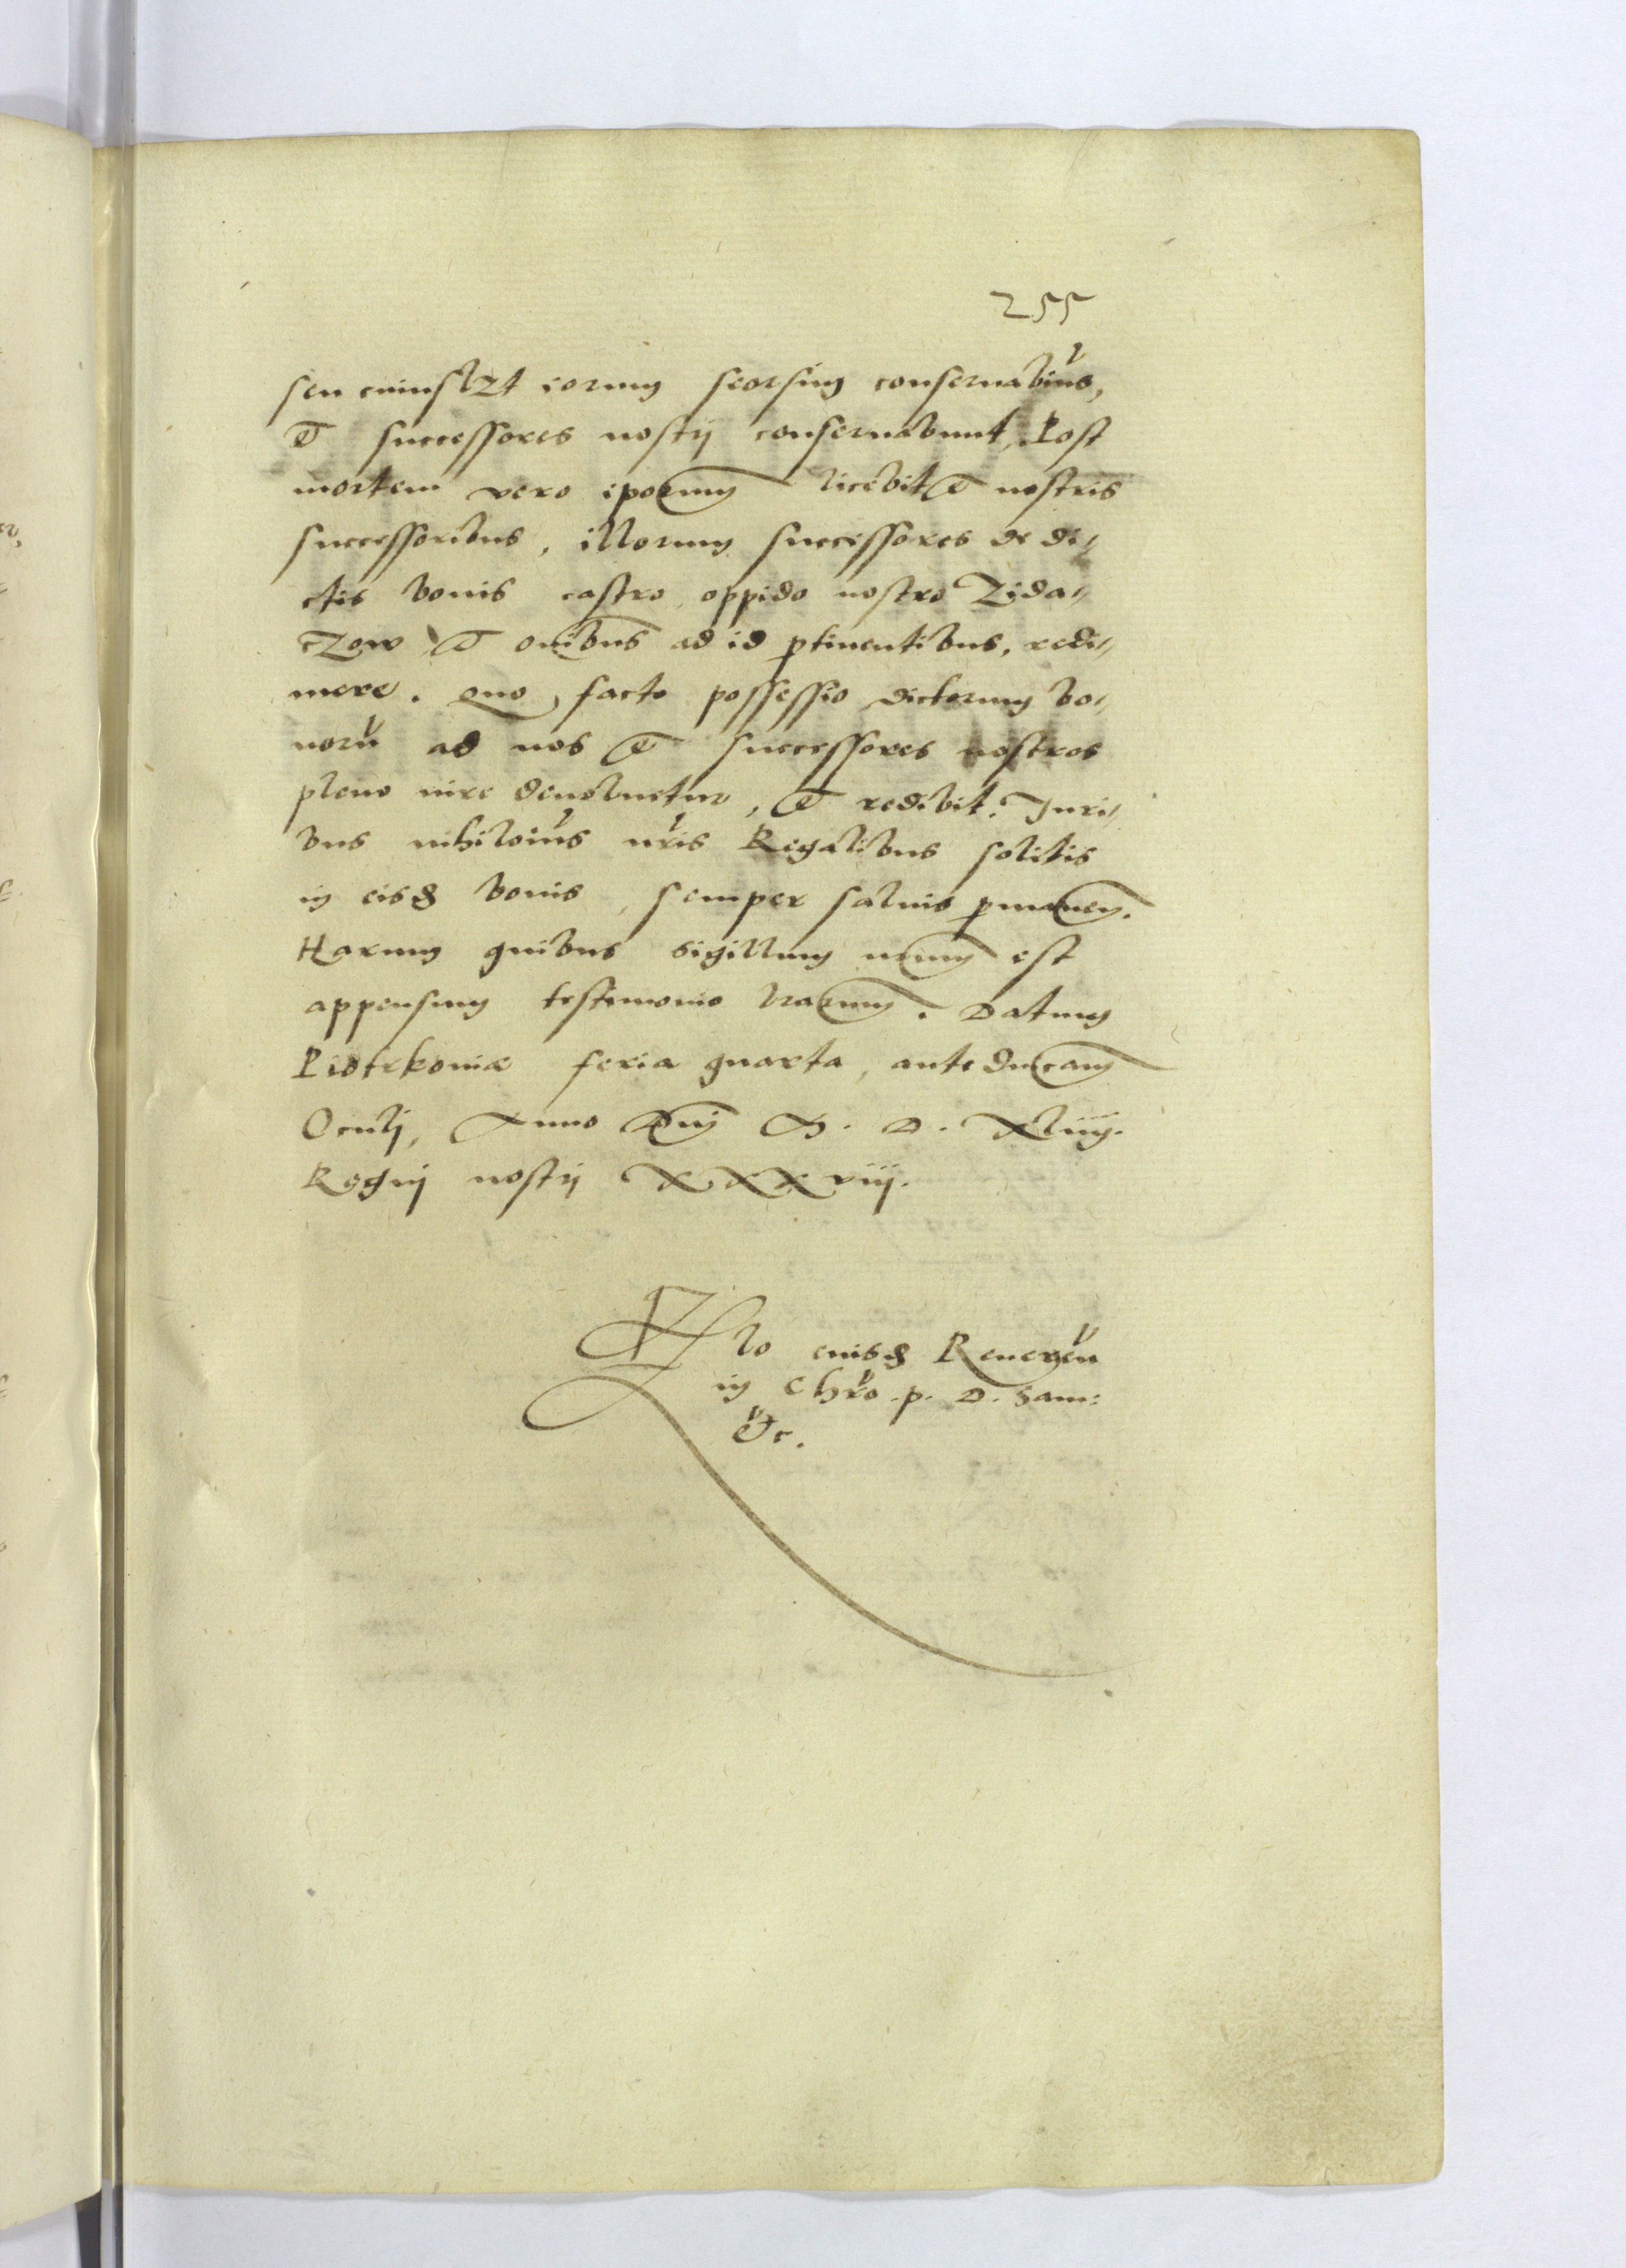 255
seu cuiuslzt eorum seorsim conseruabim̃s,
et successores nostrj conseruabunt, Post
mortem vero ipõrum licebit et nostris
successoribus, illorum successores de di„
ctis bonis castro oppido nostro Zida„
czow et om̃ibus ad id ptinentibus, redi„
mere. Quo facto possessio dictorum bo„
norũ ad nos et successores nostros
pleno iure deuoluetur, et redibit. Iuri„
bus nihilom̃s nr̃is Regalibus solitis
in eisd bonis, semper saluis pmaneñ.
Harum quibus sigillum nr̃um est
appensum testimonio lr̃arum. Datum
Piotrkouiæ feria quarta, ante dñicam
Oculj, Anno Dñi M. D. xliiij.
Regnj nostrj XXXviij.
Rlo eiusd Reuereñ
in Chr̃o .p. D. Sam:
&c.